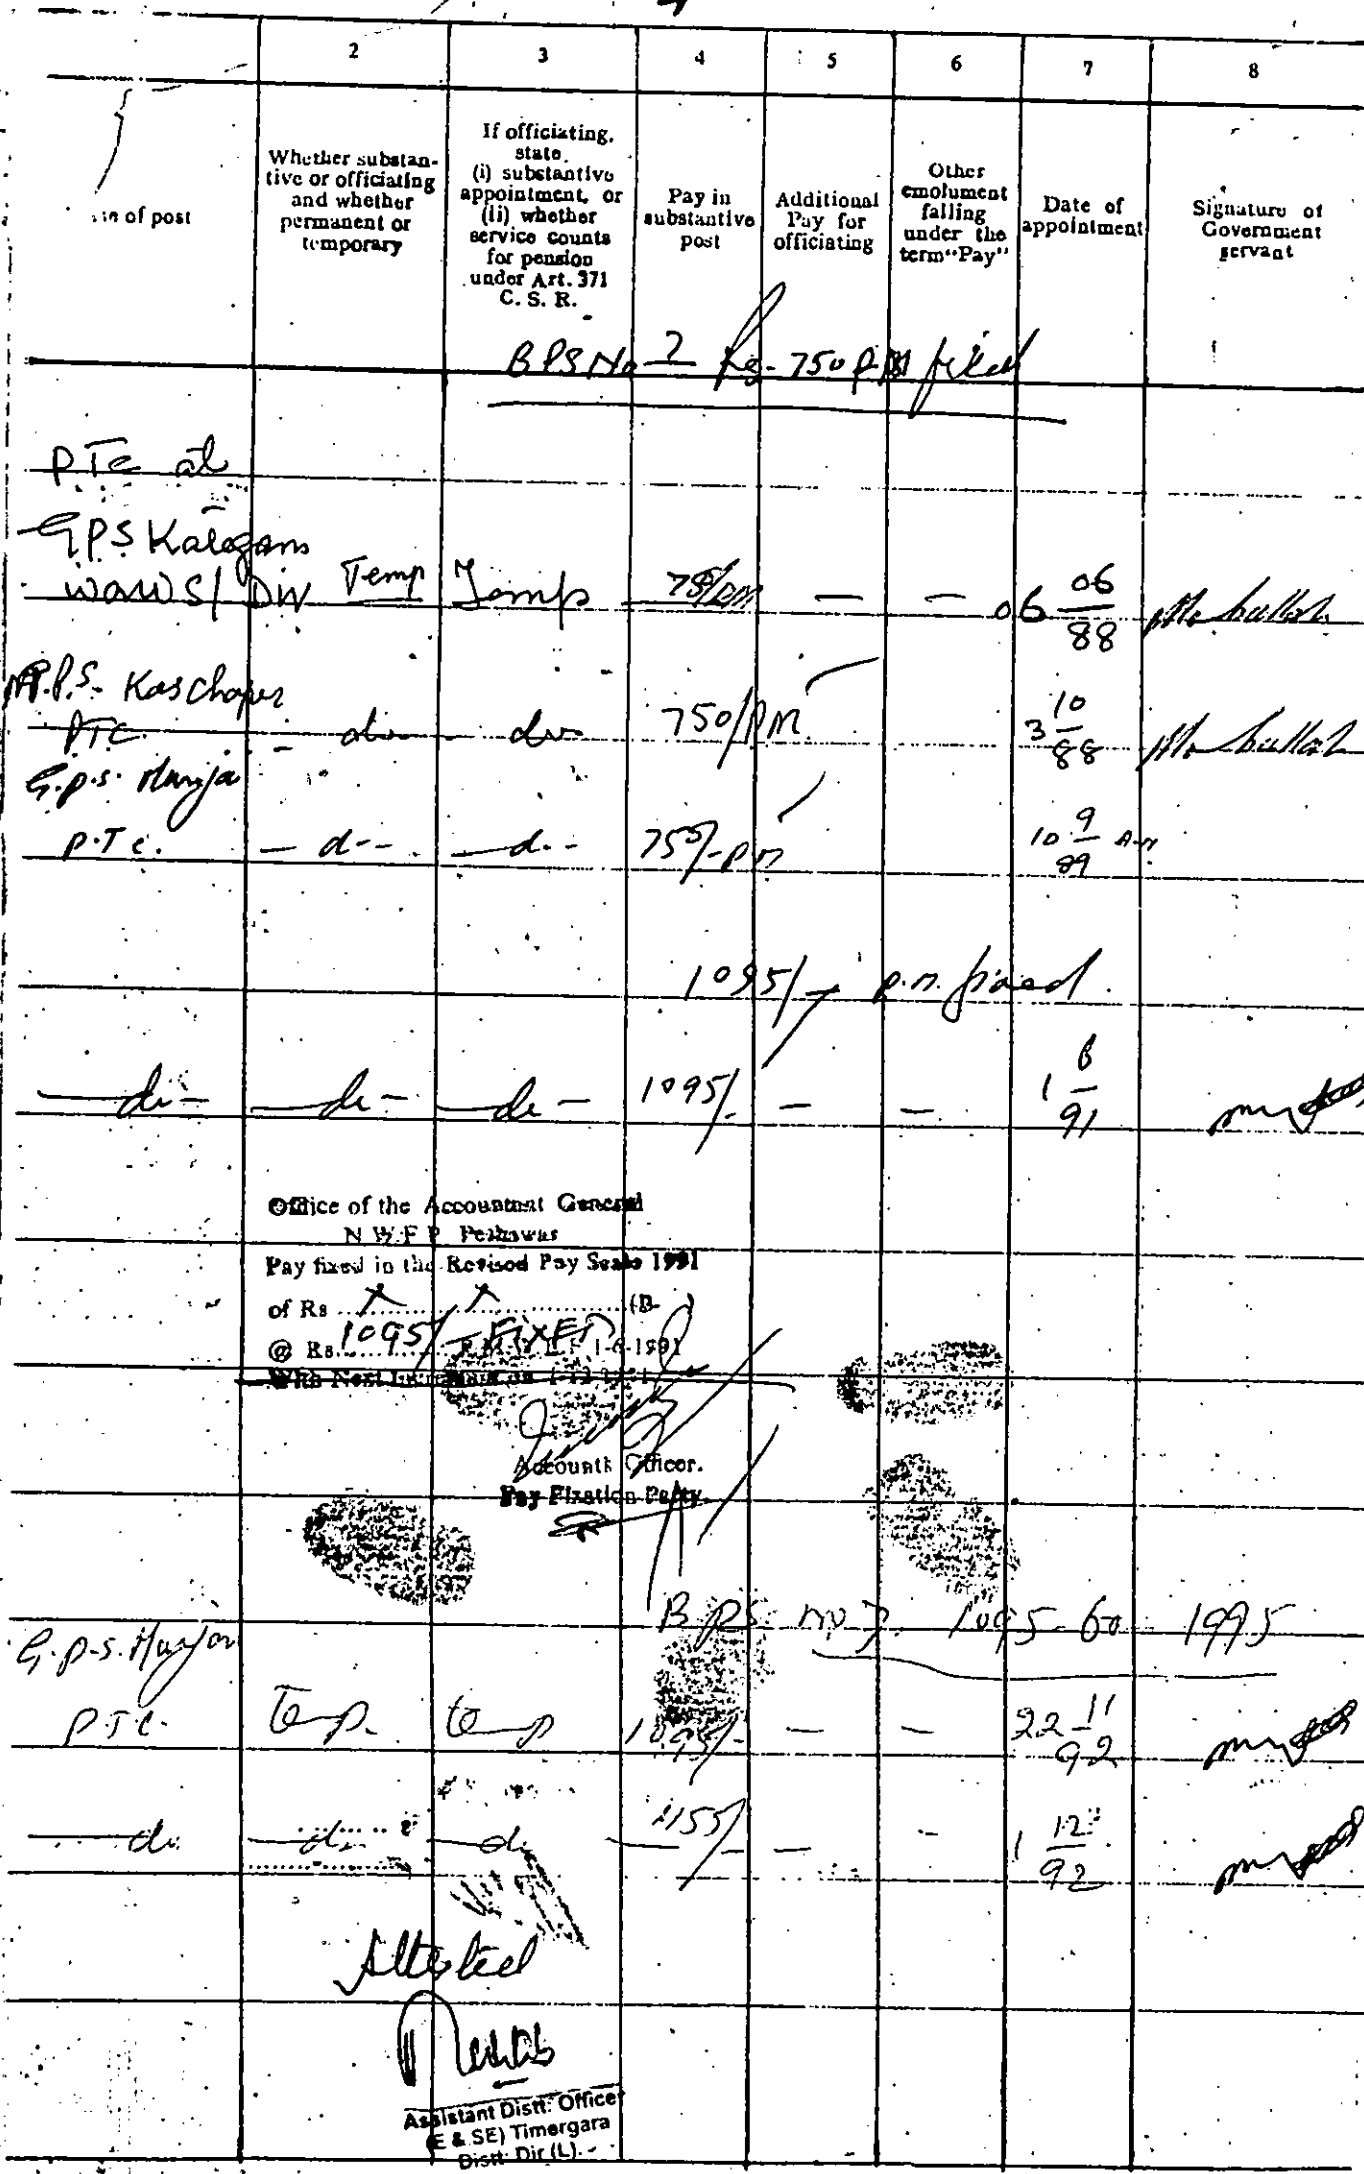 2 3 4 5 6 7 8
of post
Whether substan-
tive or officiating
and whether
permanent or
temporary
If officiating,
state
(i) substantive
appointment, or
(ii) whether
service counts
for pension
under Art. 371
C. S. R.
Pay in
substantive
post
Additional
Pay for
officiating
Other
emolument
falling
under the
term "Pay"
Date of
appointment
Signature of
Government
servant
BPS No 7 Rs- 750 P.M fixed
PTC at
GPS
Temp Temp — — 06 06/88
Kaschaper
PTC. do do 750/PM 3 10/88
G.P.S.
P.T.C. — d-- — d-- 750/- pm 10 9/89
1095/- p.m. fixed
— do — — do — — do — 1095/- — — 1 6/91
Office of the Accountant General
N.W.F.P. Peshawar
Pay fixed in the Revised Pay Scale 1991
of Rs X X (B- )
@ Rs 1095/- FIXED 1-6-1991
With Next Increment on 1-12-1991
Accounts Officer.
Pay Fixation Party.
BPS no 7. 1095-60 1995
G.P.S.
P.T.C. Temp. temp 1095/- — — 22 11/92
— do — do — do 1155/- — - 1 12/92
Attested
Assistant Distt: Officer
(E & SE) Timergara
Distt: Dir (L).